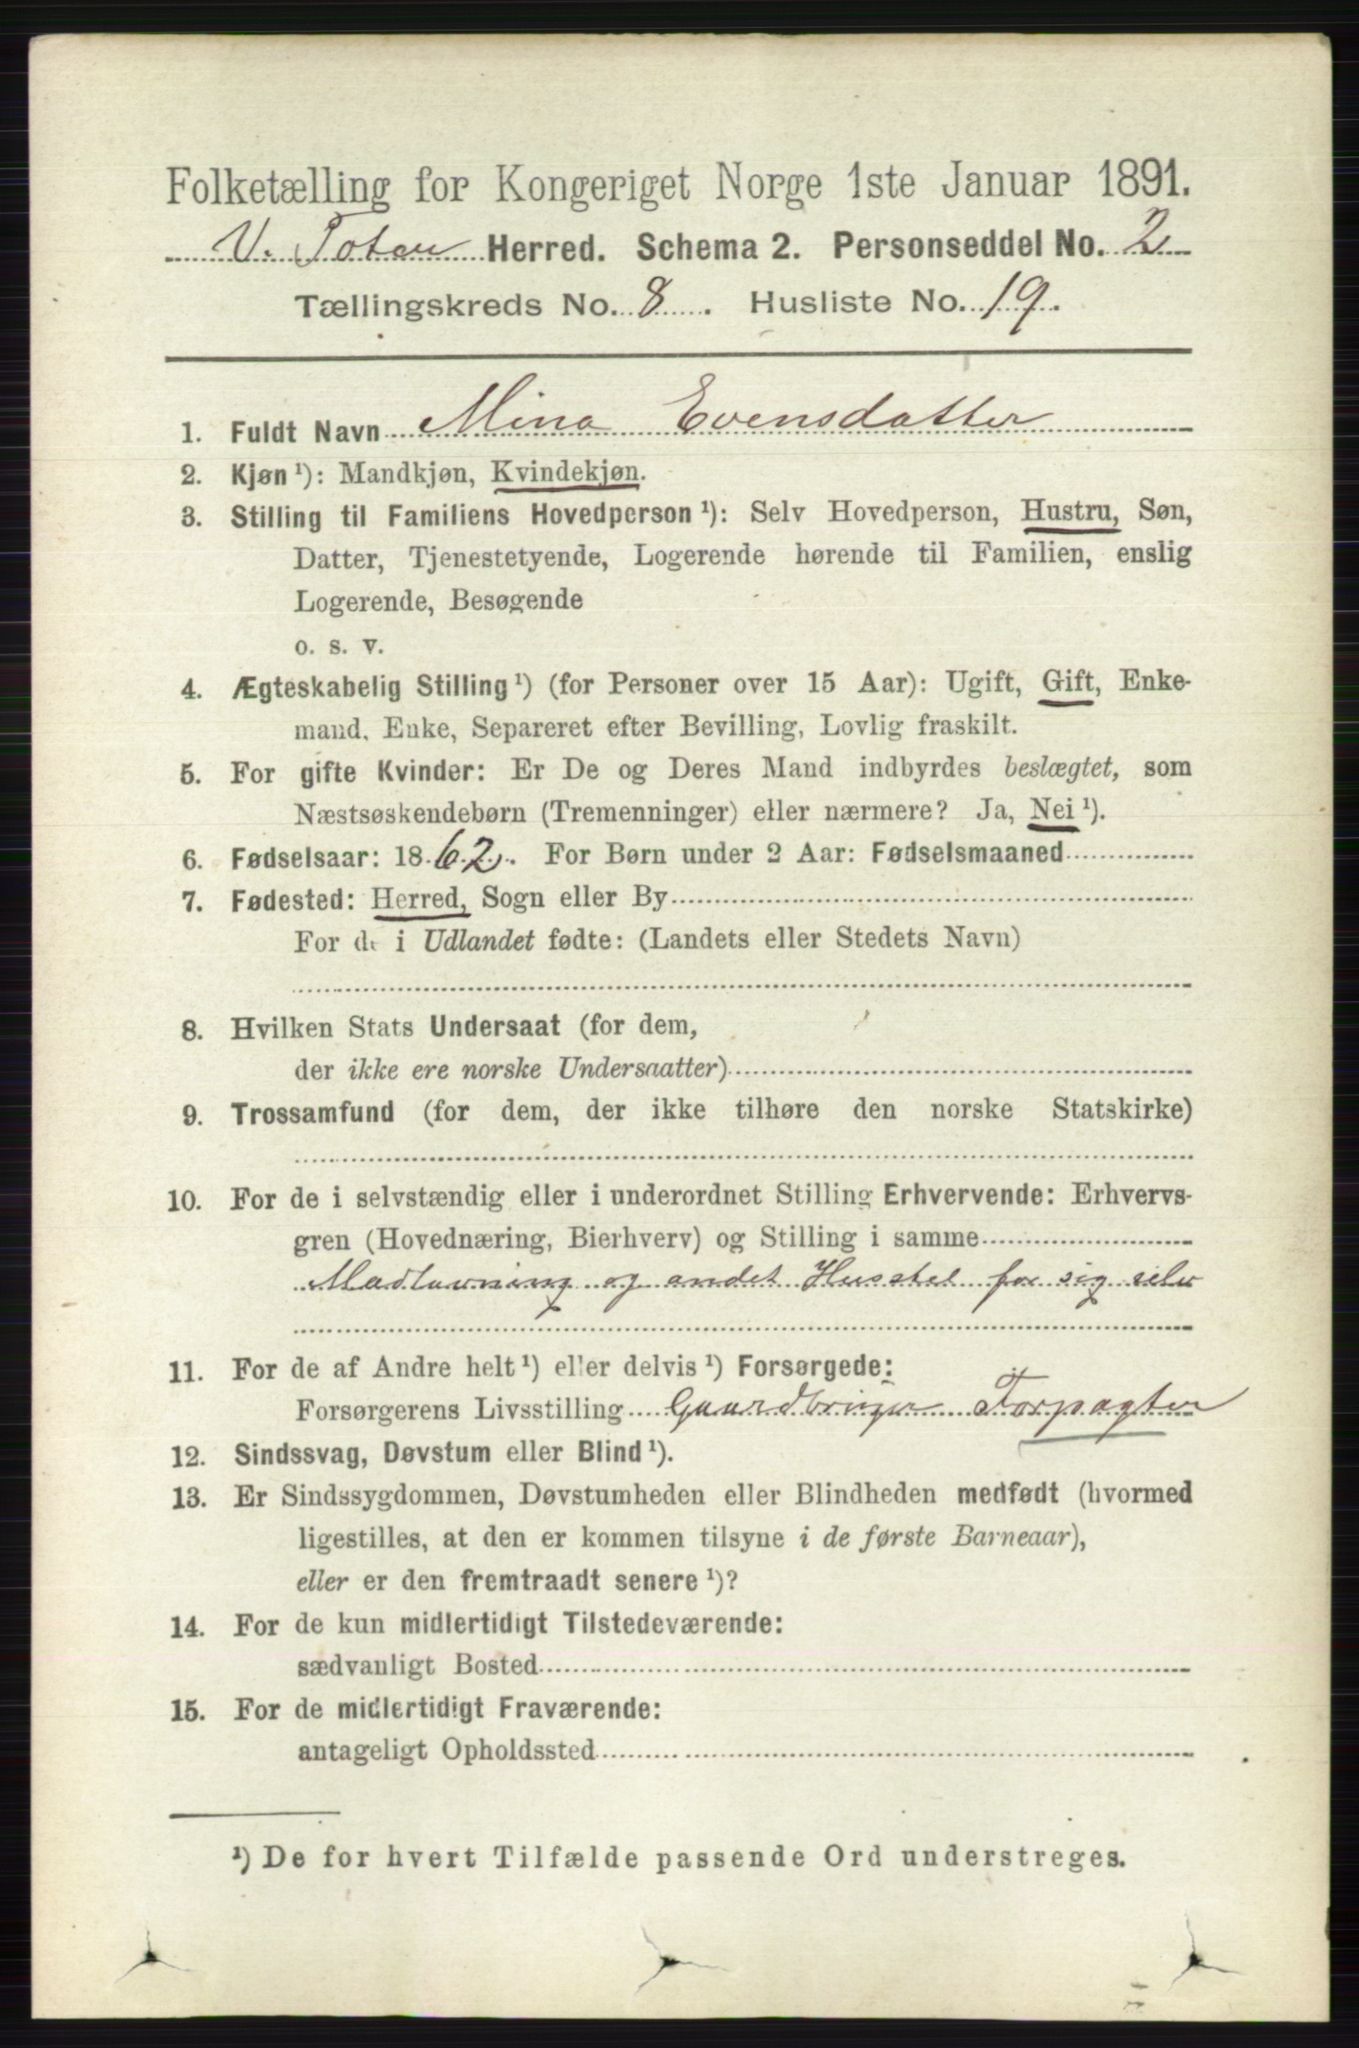 Folketælling for Kongeriget Norge 1ste Januar 1891.
V. Toten Herred. Schema 2. Personseddel No. 2
Tællingskreds No. 8. Husliste No. 19.
1. Fuldt Navn Mina Evensdatter
2. Kjøn ¹): Mandkjøn, Kvindekjøn.
3. Stilling til Familiens Hovedperson ¹): Selv Hovedperson, Hustru, Søn,
Datter, Tjenestetyende, Logerende hørende til Familien, enslig
Logerende, Besøgende
o. s. v.
4. Ægteskabelig Stilling ¹) (for Personer over 15 Aar): Ugift, Gift, Enke-
mand, Enke, Separeret efter Bevilling, Lovlig fraskilt.
5. For gifte Kvinder: Er De og Deres Mand indbyrdes beslægtet, som
Næstsøskendebørn (Tremenninger) eller nærmere? Ja, Nei ¹).
6. Fødselsaar: 1862. For Børn under 2 Aar: Fødselsmaaned
7. Fødested: Herred, Sogn eller By
For de i Udlandet fødte: (Landets eller Stedets Navn)
8. Hvilken Stats Undersaat (for dem,
der ikke ere norske Undersaatter)
9. Trossamfund (for dem, der ikke tilhøre den norske Statskirke)
10. For de i selvstændig eller i underordnet Stilling Erhvervende: Erhvervs-
gren (Hovednæring, Bierhverv) og Stilling i samme
Madlavning og andet Husstel for sig selv
11. For de af Andre helt ¹) eller delvis ¹) Forsørgede:
Forsørgerens Livsstilling Gaardbruger Forpagter
12. Sindssvag, Døvstum eller Blind ¹).
13. Er Sindssygdommen, Døvstumheden eller Blindheden medfødt (hvormed
ligestilles, at den er kommen tilsyne i de første Barneaar),
eller er den fremtraadt senere ¹)?
14. For de kun midlertidigt Tilstedeværende:
sædvanligt Bosted
15. For de midlertidigt Fraværende:
antageligt Opholdssted
¹) De for hvert Tilfælde passende Ord understreges.